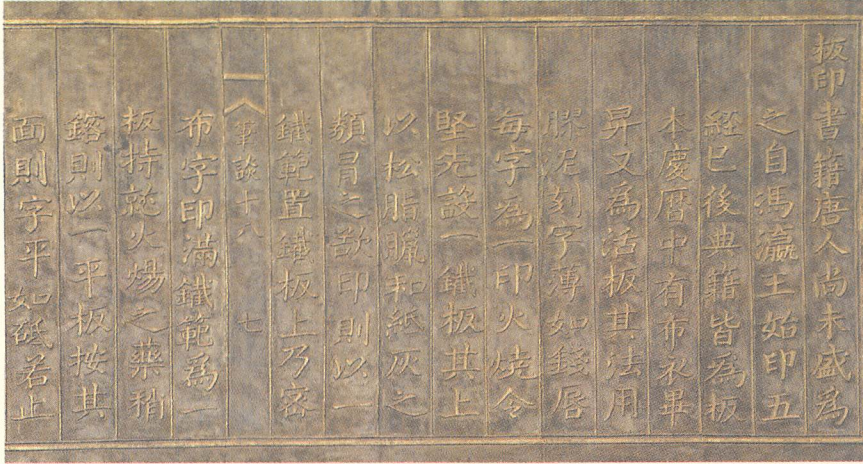 板印書籍唐人尚未盛為
之自馮瀛王始印五
經已後典籍皆為板
本慶曆中有布衣畢
昇又為活板其法用
膠泥刻字薄如錢唇
每字為一印火燒令
堅先設一鐵板其上
以松脂臘和紙灰之
類冒之欲印則以一
鐵範置鐵板上乃密
筆談十八 七
布字印滿鐵範為一
板持就火煬之藥稍
鎔則以一平板按其
面則字平如砥若止